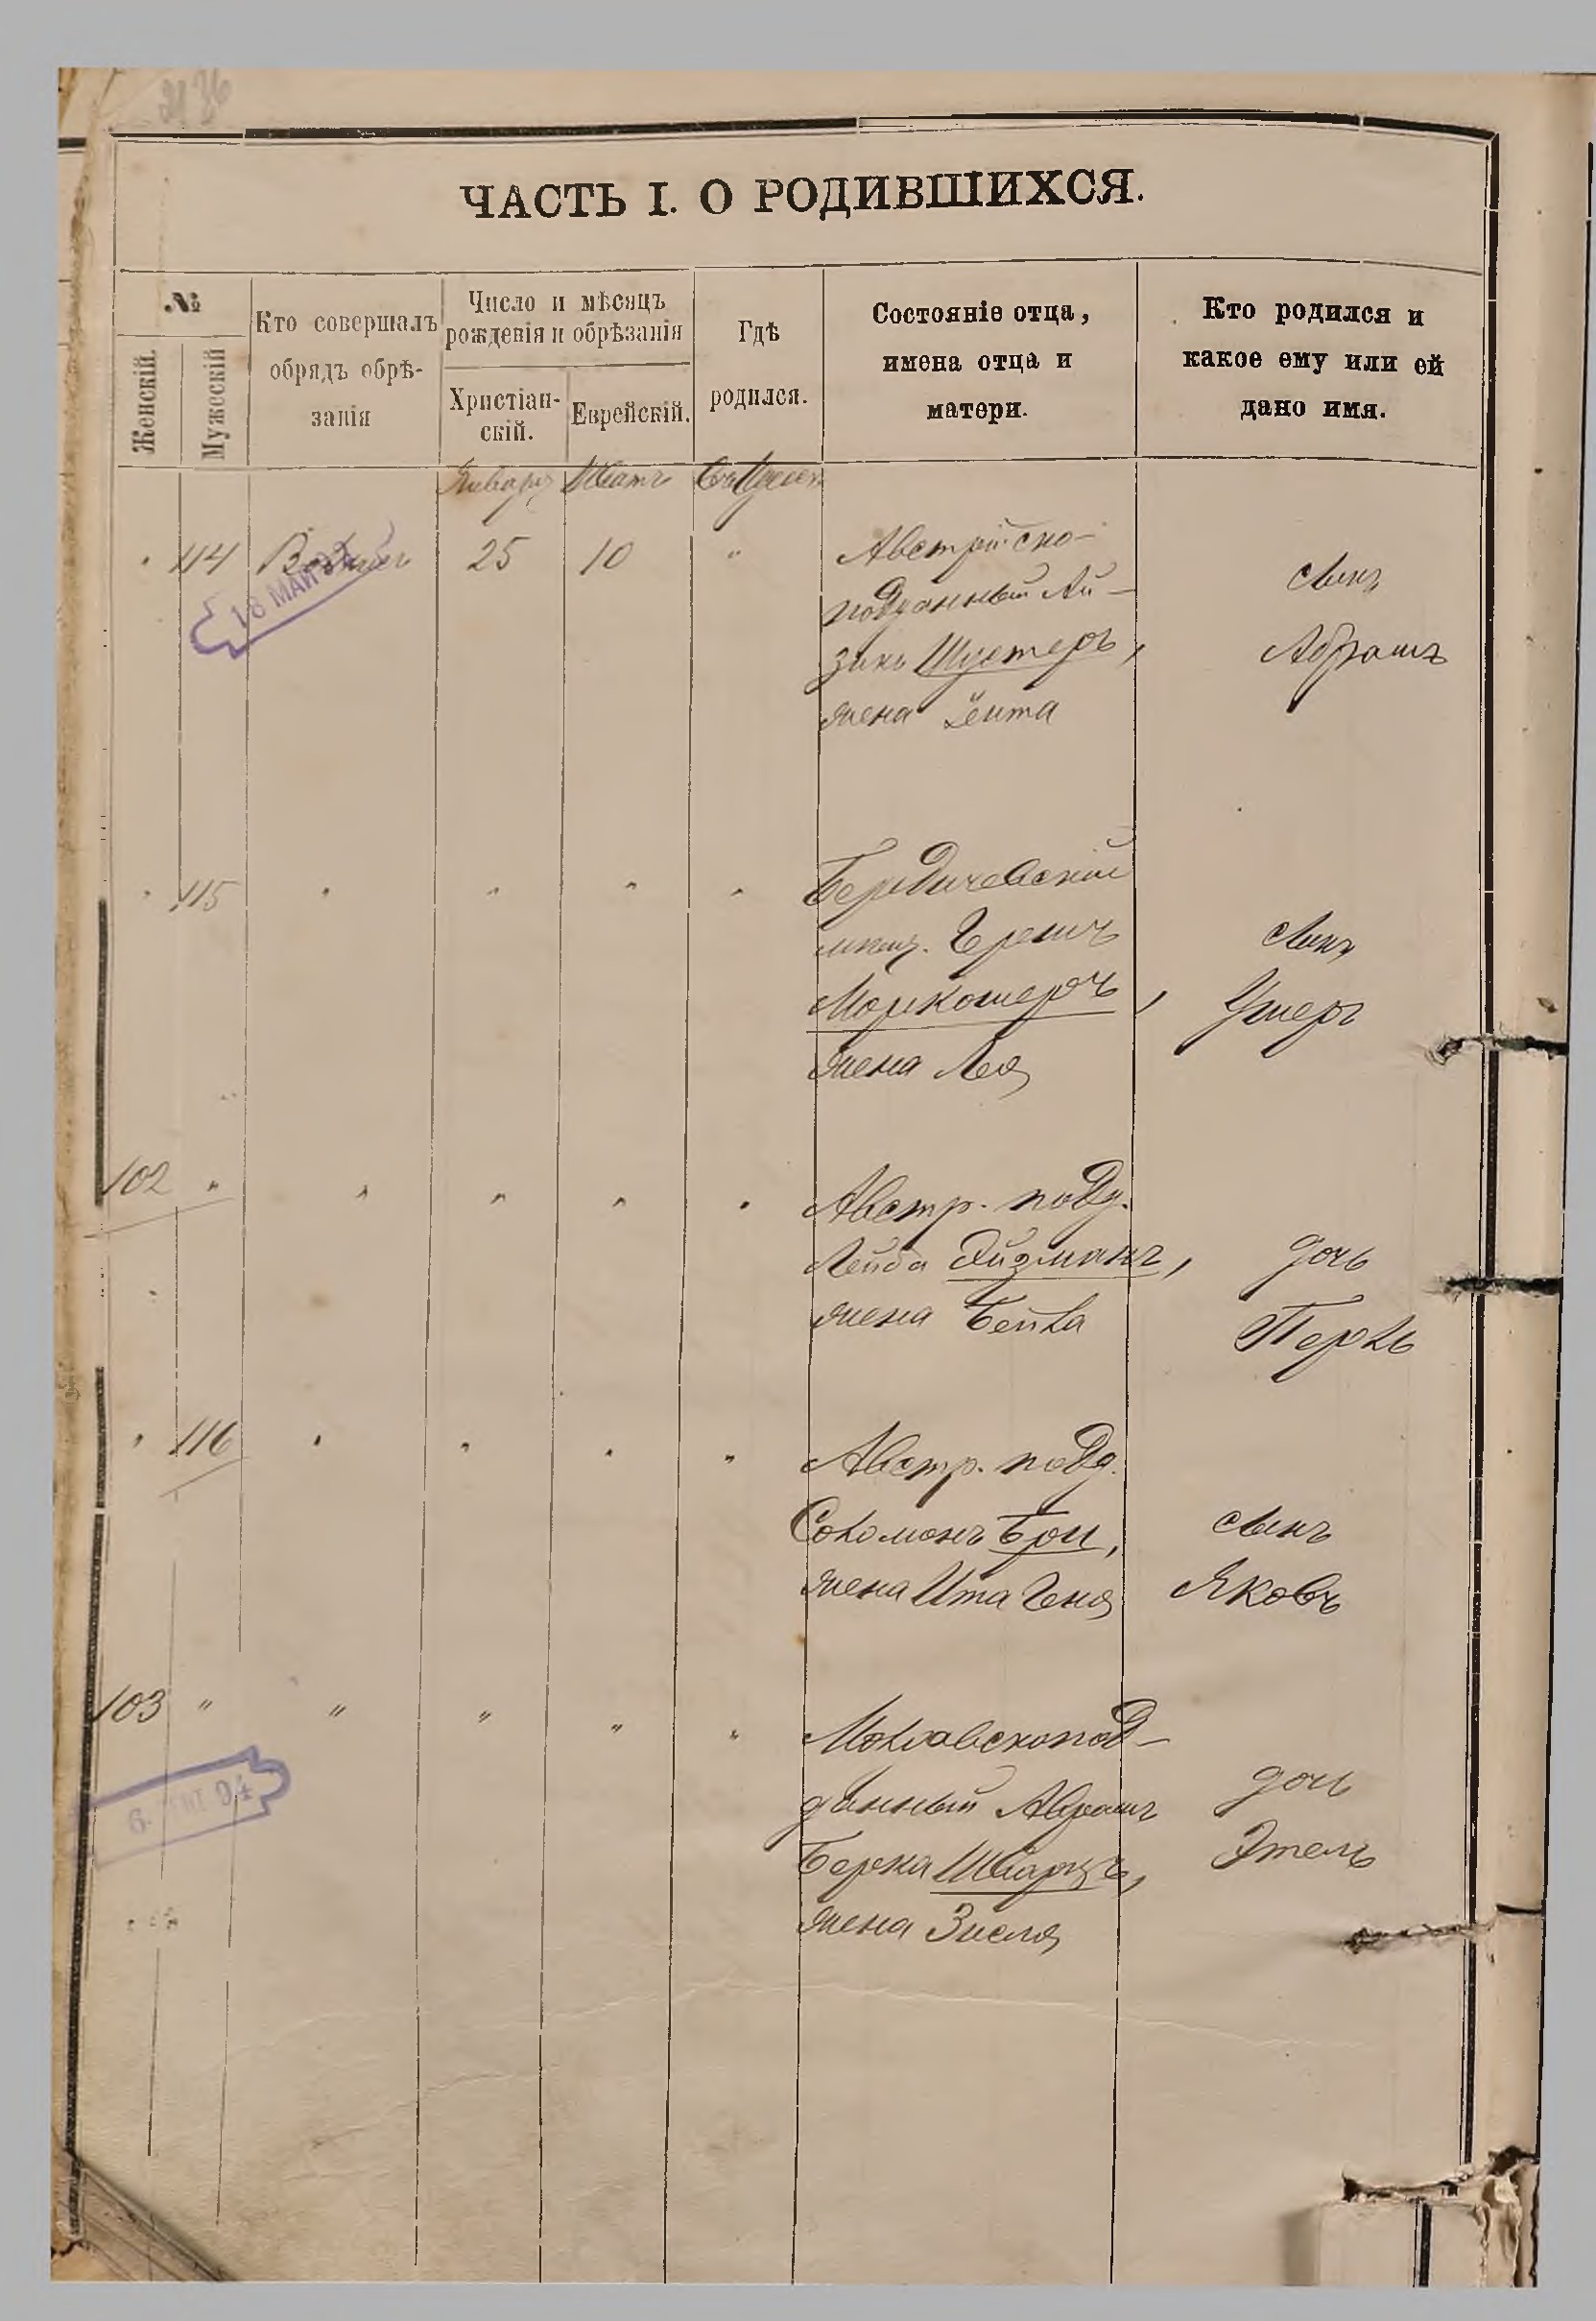 ЧАСТЬ I. О РОДИВШИХСЯ.
№
Женскій.
Мужескій
Кто совершалъ
обрядъ обрѣ-
занія
Число и мѣсяцъ
рожденія и обрѣзанія
Христіан-
скій.
Еврейскій.
Гдѣ
родился.
Состояніе отца,
имена отца и
матери.
Кто родился и
какое ему или ей
дано имя.
Январь Шватъ
114 25 10 "
Австрійско-
подданный Ай-
зикъ Шустеръ,
жена Ента
сынъ
Абрамъ
18 МАЙ
115 " " " "
Бердичевскій
мѣщ.
жена Лея
сынъ
Ушеръ
102 " " " " "
Австр. подд.
Лейба Айзманъ,
жена Бейла
дочь
Перль
" 116 " " " "
Австр. подд.
Соломонъ Бри,
жена Ита Геня
сынъ
Яковъ
103 " " " " "
Молдавскопод-
данный Абрамъ
Берка Шварцъ,
жена Зисля
дочь
Этель
6. 94